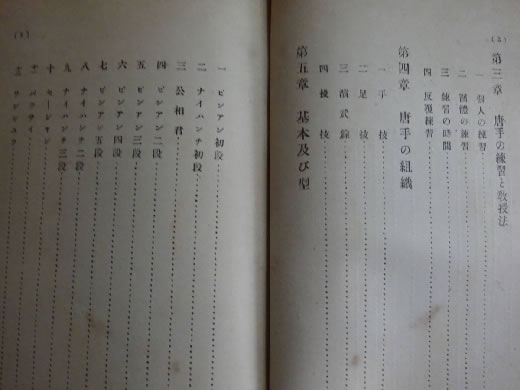 (2)
第三章 唐手の練習と敎授法
一 個人の練習
二 團體の練習
三 練習の時間
四 反覆練習
第四章 唐手の組織
一 手技
二 足技
三 演武線
四 機技
第五章 基本及び型
(3)
一 ピンアン初段
二 ナイハンチ初段
三 公相君
四 ピンアン二段
五 ピンアン三段
六 ピンアン四段
七 ピンアン五段
八 ナイハンチ二段
九 ナイハンチ三段
十 セーシヤン
十一 パツサイ
十二 ワンシユウ